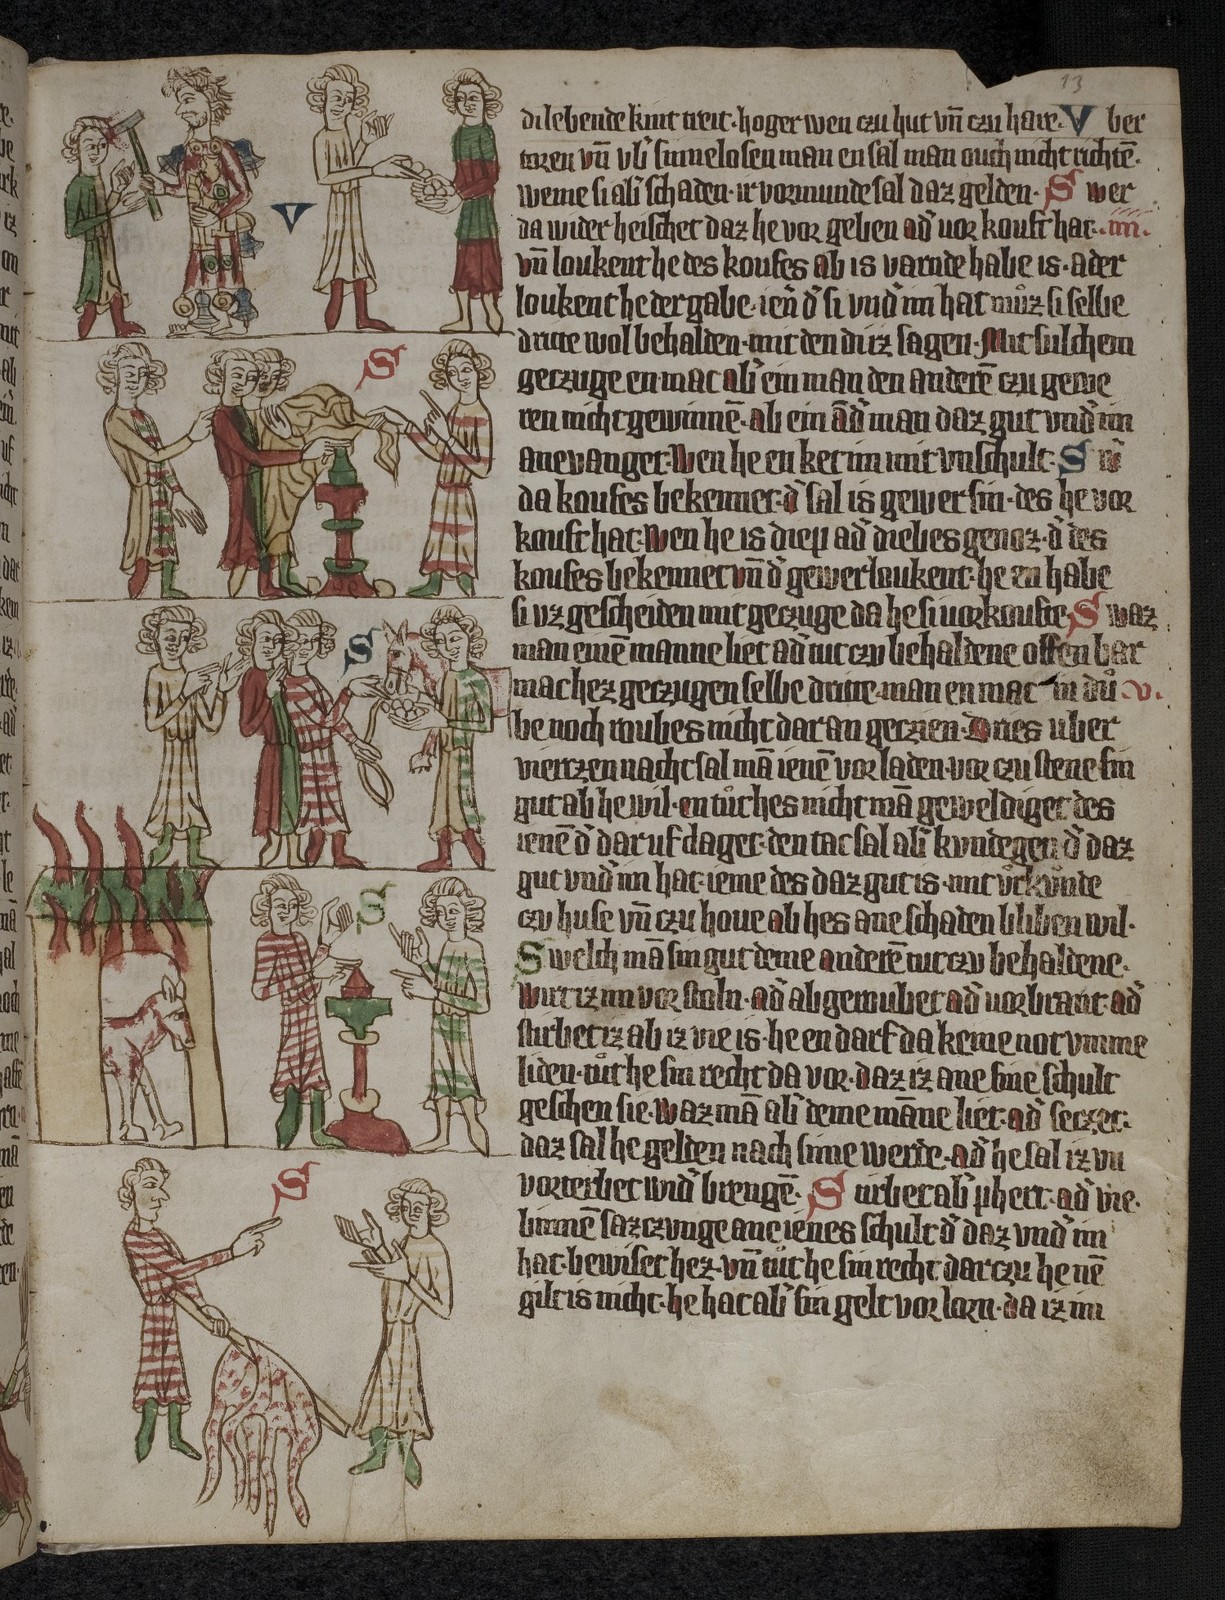 13
di lebende kint treit· hoger wen czu hut vn̄ czu hare· V ber
toren vn̄ vb̓ sinnelosen man en sal man ouch nicht richtē·
weme si ab̓ schaden· ir vormunde sal daz gelden· S wer
da wider heischet daz he vor geben ad̓ vor kouft hat· ·iiii·
vn̄ loukent he des koufes ab is varnde habe is· ader
loukent he der gabe· ien̄ d̓ si vnd̓ im hat muͦz si selbe
dritte wol behalden· mit den di iz sagen· Mit sulchem
geczuge en mac ab̓ ein man den anderē czu gewe
ren nicht gewinnē· ab ein ād̓ man daz gut vnd̓ im
anevanget· Wen he en ket im mit vnschult· S w̓
da koufes bekennet· d̓ sal is gewer sin· des he vor
kouft hat· Wen he is diep ad̓ diebes genoz· d̓ des
koufes bekennet vn̄ d̓ gewer loukent· he en habe
si vz gescheiden mit geczuge da he si vorkoufte· S waz
man einē manne liet ad̓ tut czu behaldene offenbar
mac hez geczugen selbe dritte· man en mac in duͦ ·v·
be noch roubes nicht dar an geczien· Dries uber
viertzen nacht sal mā ienē vor laden· vor czu stene sin
gut ab he wil· en tuͦt hes nicht mā geweldiget des
ienē d̓ dar uf claget· den tac sal ab̓ kundegen d̓ daz
gut vnd̓ im hat· ieme des daz gut is· mit vrkunde
czu huse vn̄ czu houe ab hes ane schaden bliben wil·
S welch mā sin gut deme anderē tut czu behaldene·
wirt iz im vor stoln· ad̓ ab geroubet ad̓ vorbrant· ad̓
stirbet iz ab iz vie is· he en darf da keine not vmme
liden· tuͦt he sin recht da vor· daz iz ane sine schult
geschen sie· Waz mā ab̓ deme māne liet· ad̓ seczet·
daz sal he gelden nach sime werde· ad̓ he sal iz vn
vorterbet wid̓ brengē· S tirbet ab̓ phert· ad̓ vie·
binnē sazczunge ane ienes schult d̓ daz vnd̓ im
hat· bewiset hez· vn̄ tuͦt he sin recht dar czu he nē
gilt is nicht· he hat ab̓ sin gelt vor lorn· da iz im
V
S
S
S
S